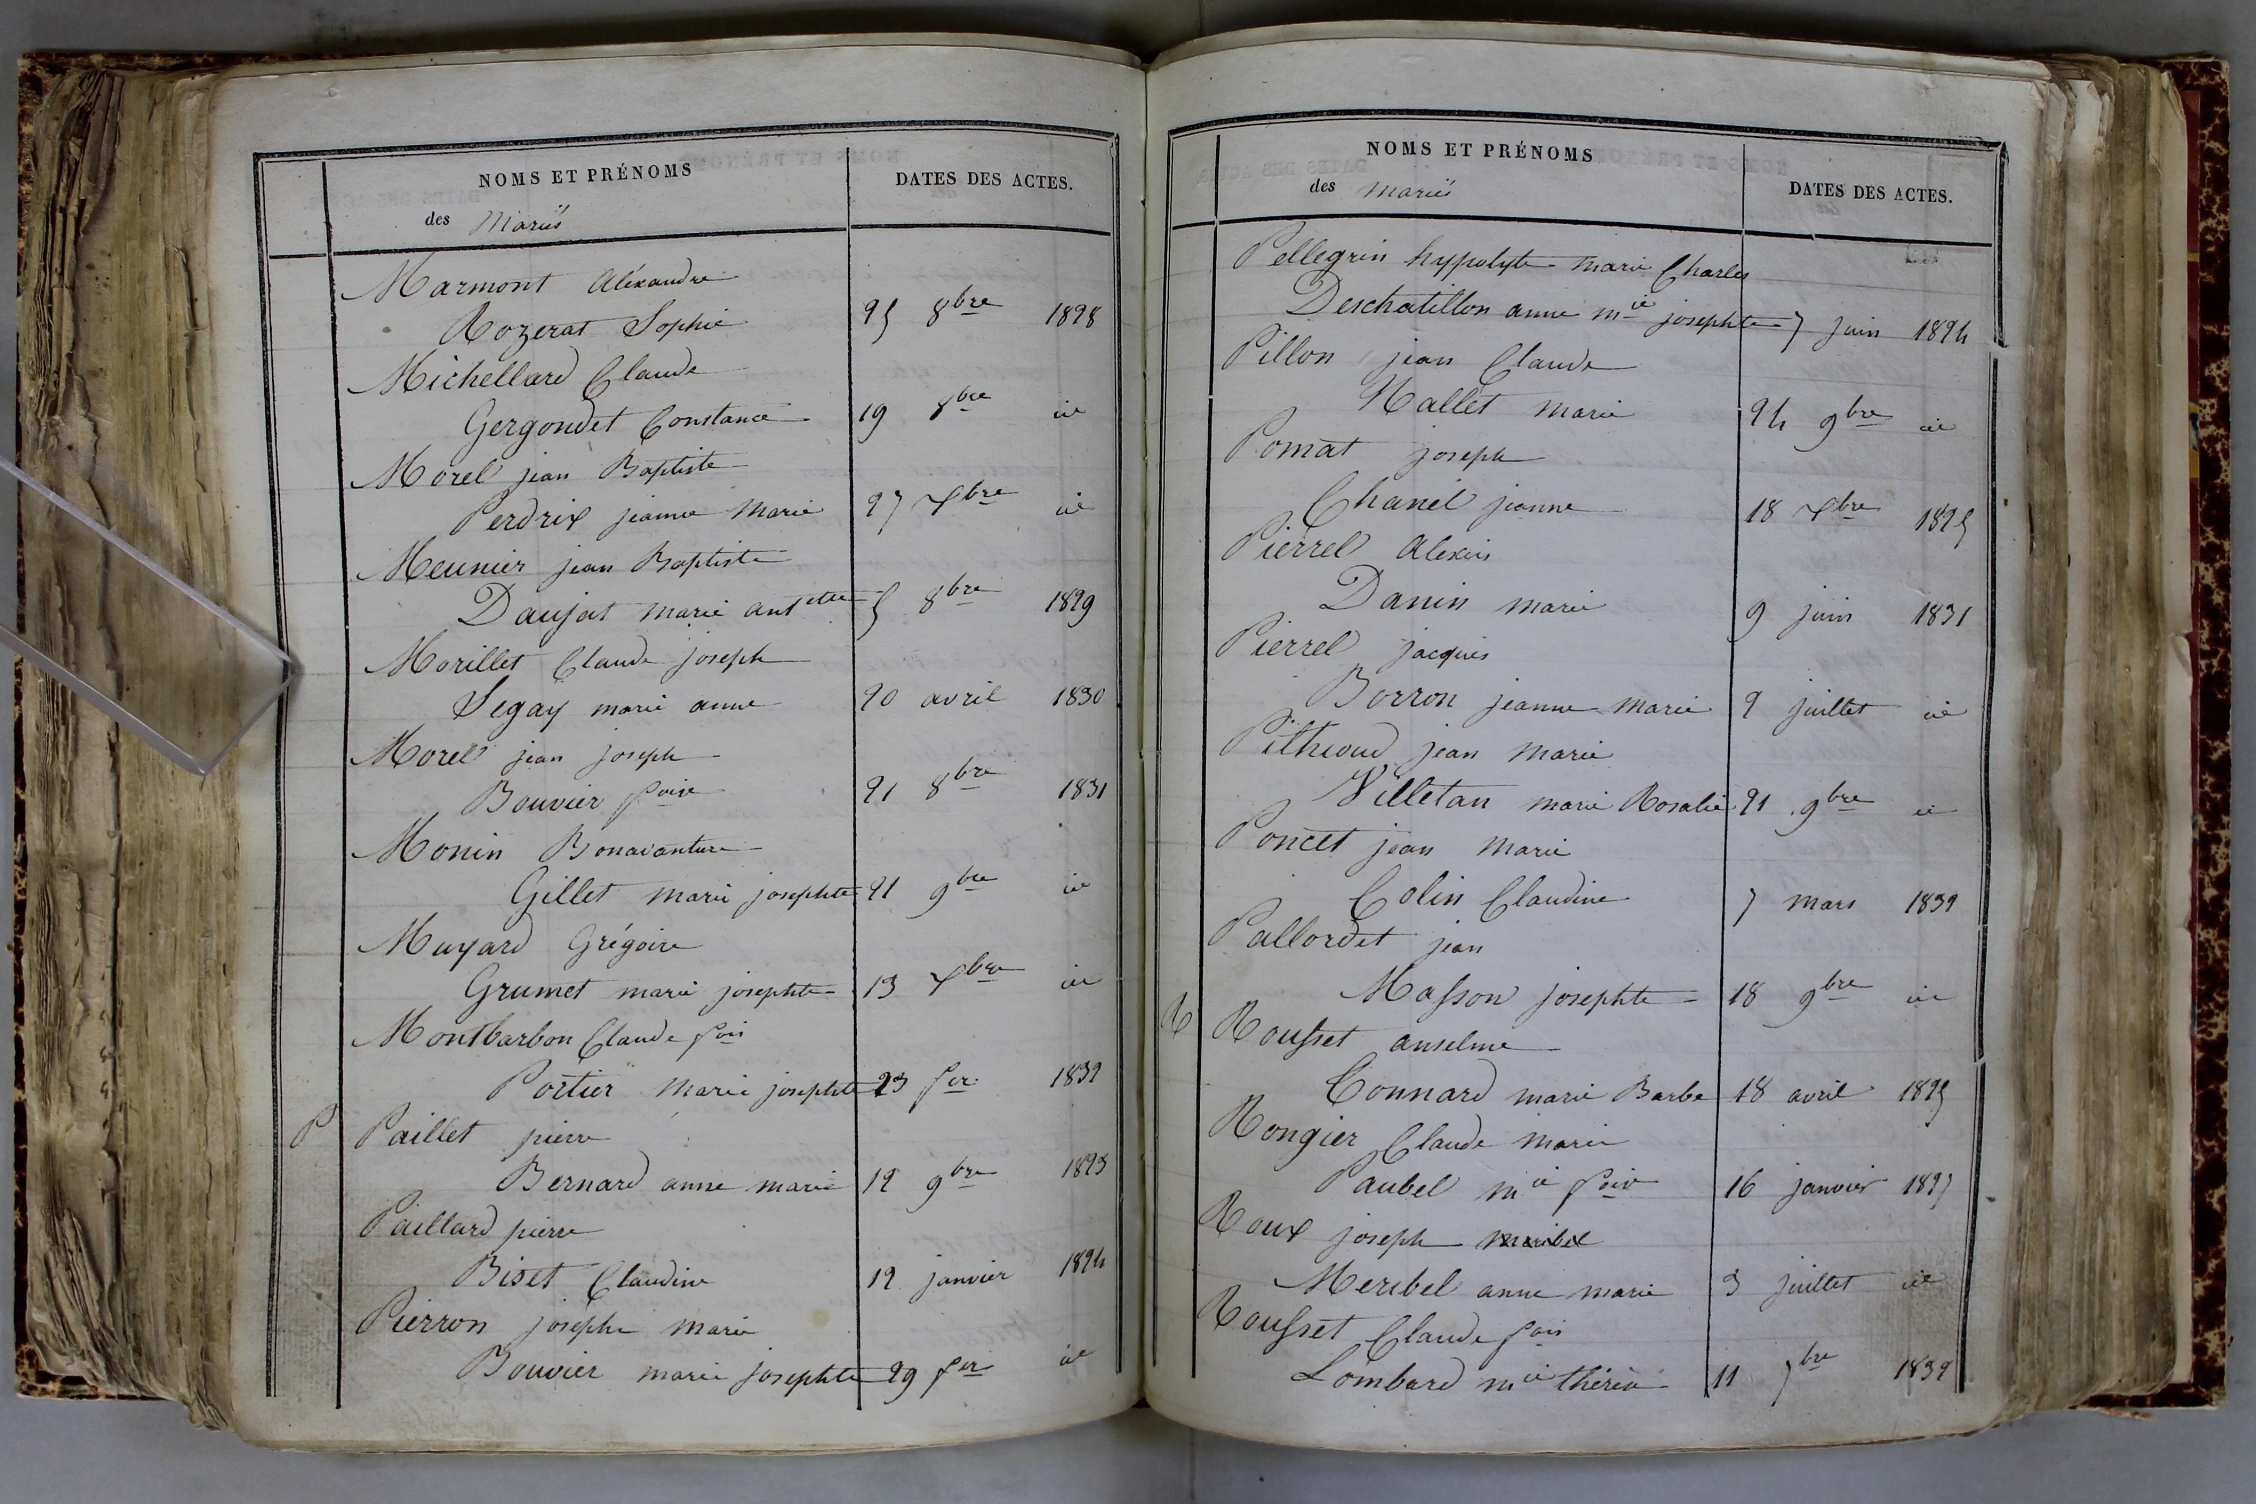 NOMS ET PRÉNOMS
des Mariés
DATES DES ACTES.
Marmont Aléxandre
Rozerat Sophie 25 8bre 1828
Michellard Claude
Gergondet Constance 19 8bre id
Morel jean Baptiste
Perdrix jeanne Marie 27 Xbre id
Meunier jean Baptiste
Daujat marie antette 5 8bre 1829
Morillet Claude joseph
Segay marie anne 20 avril 1830
Morel jean joseph
Bouvier foise 21 8bre 1831
Monin Bonavanture
Gillet marie josephte 21 9bre id
Muyard Grégoire
Grumet marie josephte 13 Xbre id
Montbarbon Claude fois
Portier marie josephte 23 fer 1832
P Paillet pierre
Bernard anne marie 12 9bre 1823
Paillard pierre
Biset Claudine 12 janvier 1824
Pierron josephe marie
Bouvier marie josephte 29 fer id
NOMS ET PRÉNOMS
des mariés
DATES DES ACTES.
Pellegrin hyppolyte marie Charles
Deschatillon anne mie josephte 7 juin 1824
Pillon jean Claude
Nallet marie 24 9bre id
Pomat joseph
Chanel jeanne 18 Xbre 1825
Pierrel Alexis
Danin marie 9 juin 1831
Pierrel jacques
Borron jeanne marie 2 juillet id
Pithioud jean marie
Villetan marie Rosalie 21 9bre id
Poncet jean marie
Colin Claudine 7 mars 1832
Pallordet jean
Masson josephte 18 9bre id
R Rousset anselme
Connard marie Barbe 18 avril 1825
Rongier Claude marie
Paubel mie foise 16 janvier 1827
Roux joseph meribel
Meribel anne marie 3 juillet id
Rousset Claude fois
Lombard mie thérèse 11 7bre 1832